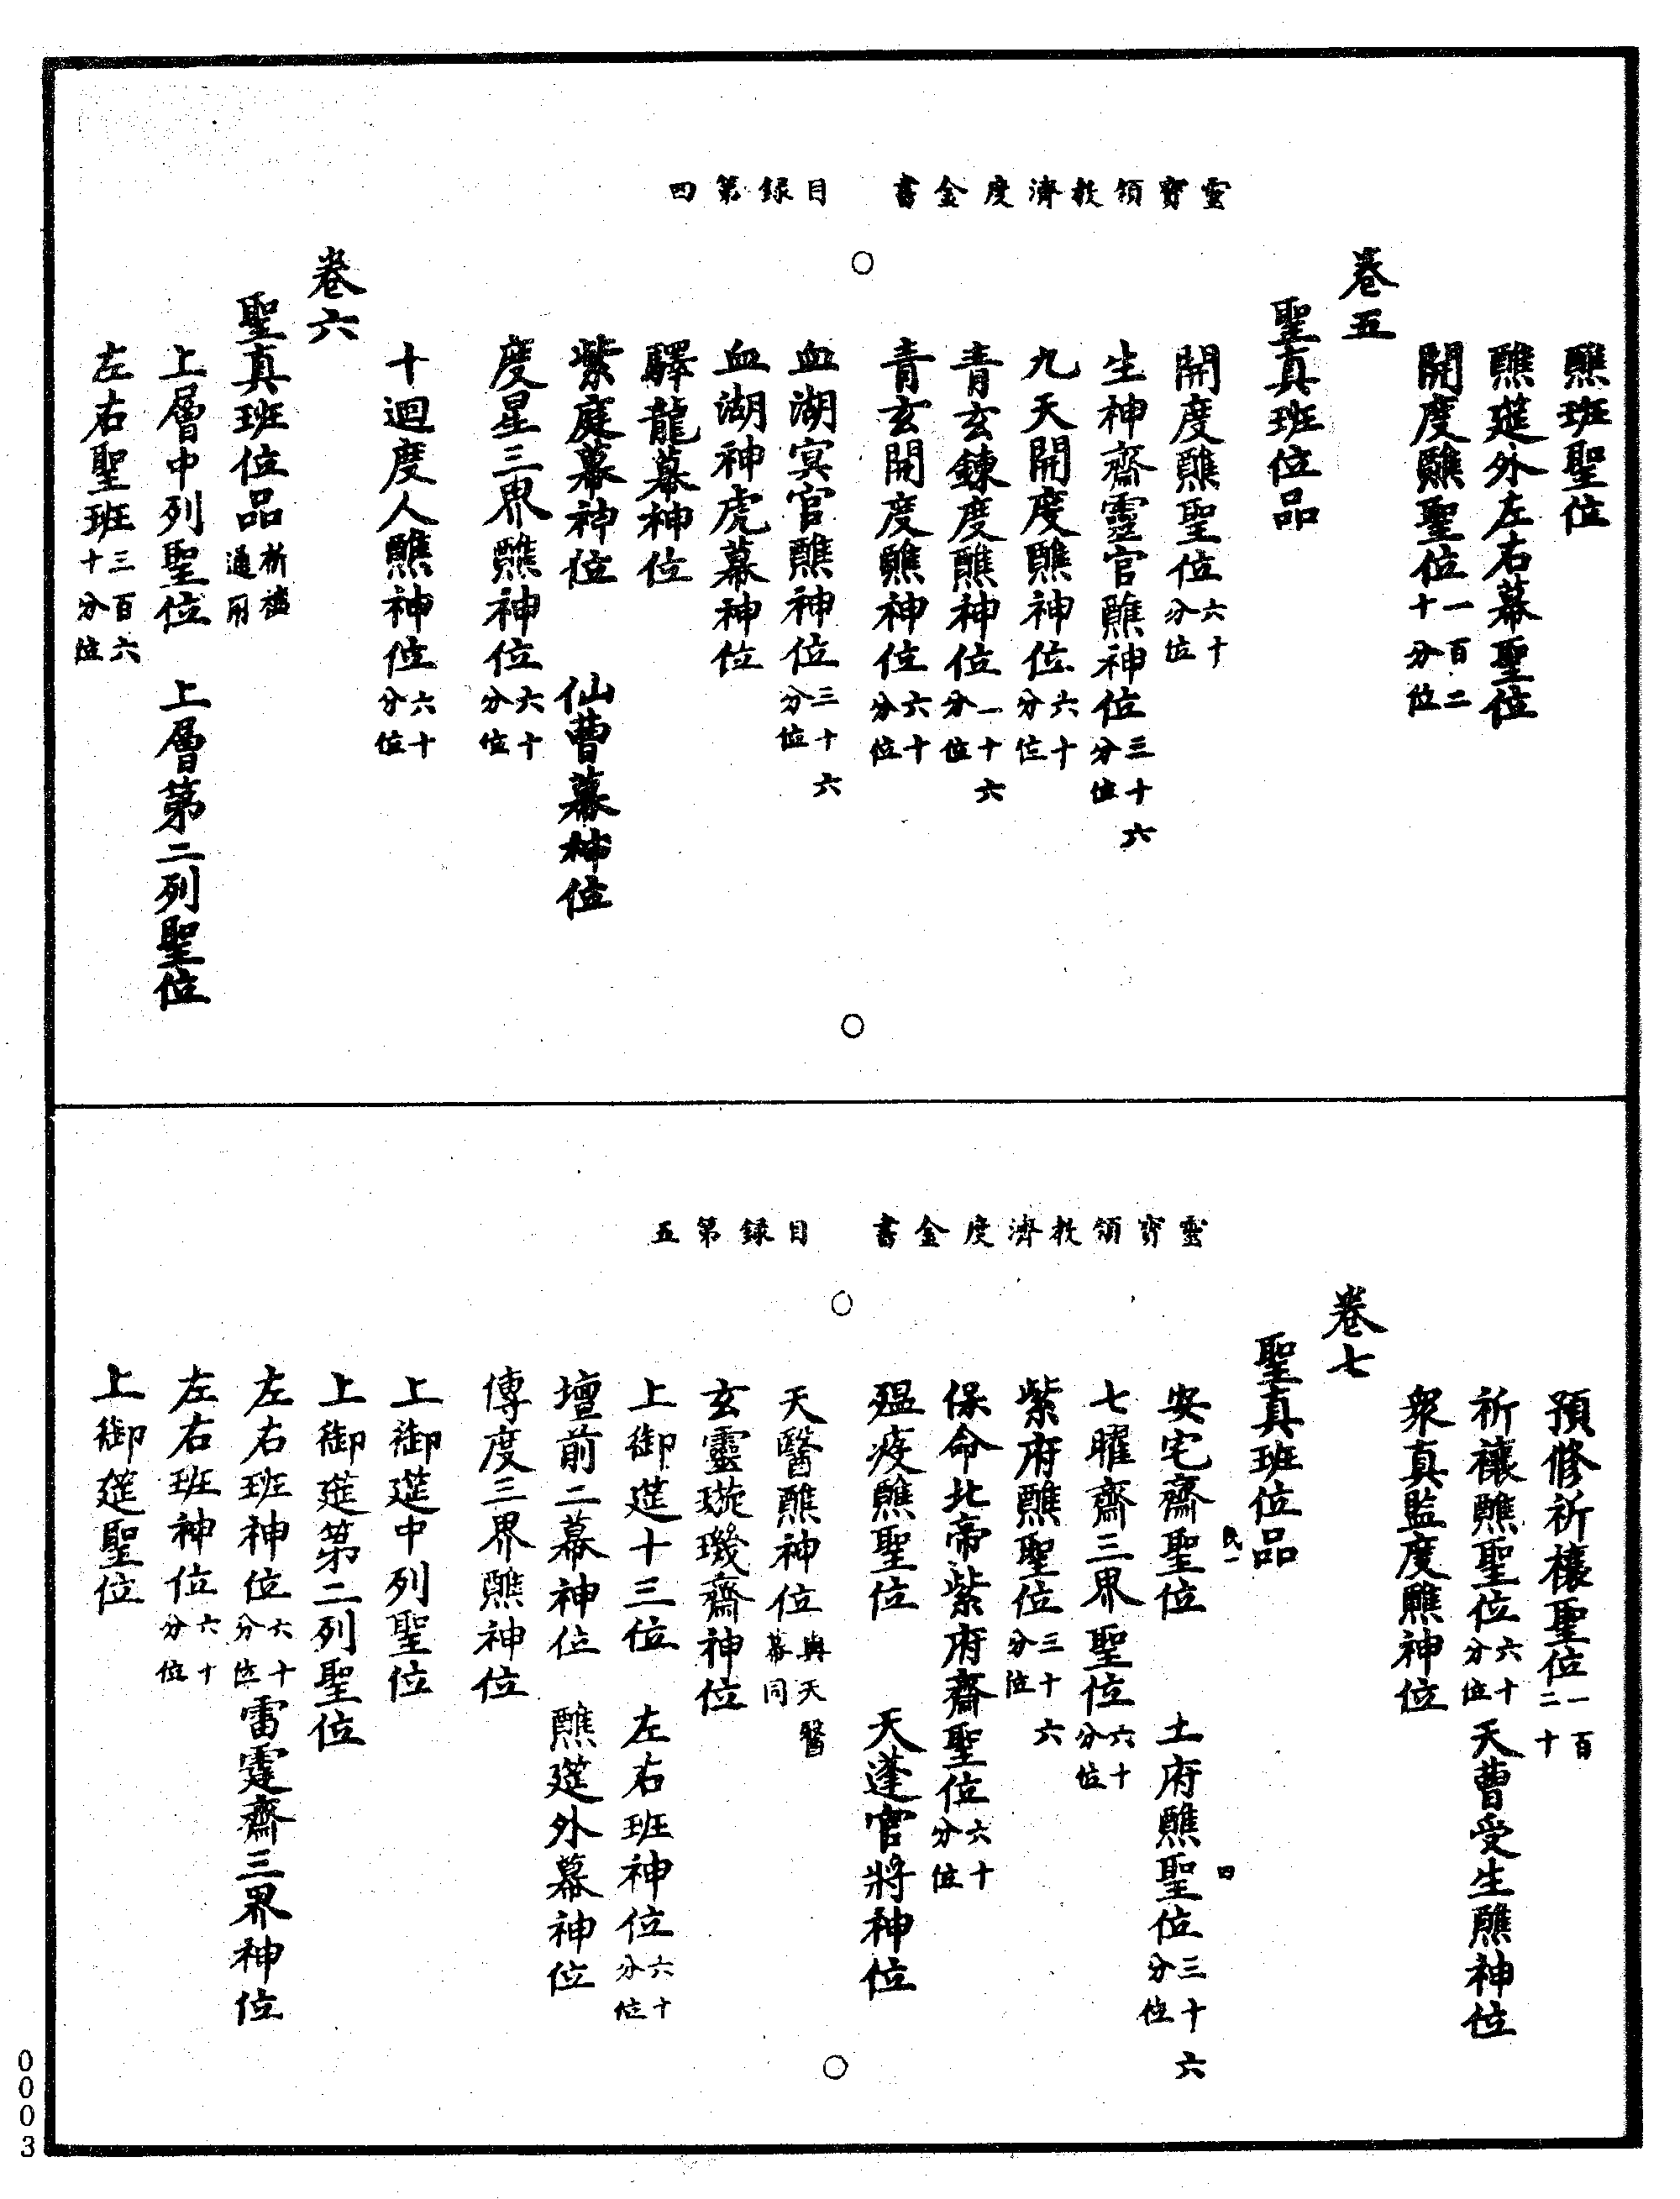 靈寶領教濟度金書　目録第四
醮班聖位
醮筵外左右幕聖位
開度醮聖位一百二十分位
卷五
聖真班位品
開度醮聖位六十分位
生神齋靈官醮神位三十六分位
九天開度醮神位六十分位
青玄鍊度醮神位一十六分位
青玄開度醮神位六十分位
血湖冥官醮神位三十六分位
血湖神虎幕神位
驛龍幕神位
紫庭幕神位　仙曹幕神位
度星三界醮神位六十分位
十迴度人醮神位六十分位
卷六
聖真班位品祈禳通用
上層中列聖位　上層第二列聖位
左右聖班三百六十分位
靈寶領教濟度金書　目録第五
預修祈禳聖位一百二十
祈禳醮聖位六十分位　天曹受生醮神位
衆真監度醮神位
卷七
聖真班位品
民一　四
安宅齋聖位　土府醮聖位三十六分位
七曜齋三界聖位六十分位
紫府醮聖位三十六分位
保命北帝紫府齋聖位六十分位
瘟疫醮聖位　天蓬官將神位
天醫醮神位與天醫幕同
玄靈璇璣齋神位
上御筵十三位　左右班神位六十分位
壇前二幕神位　醮筵外幕神位
傳度三界醮神位
上御筵中列聖位
上御筵第二列聖位
左右班神位六十分位　雷霆齋三界神位
左右班神位六十分位
上御筵聖位
0003